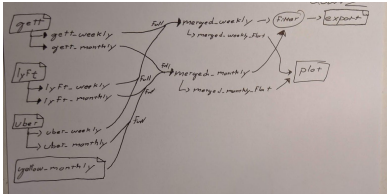 gett
gett-weekly
gett-monthly
lyft
lyft-weekly
lyft-monthly
uber
uber-weekly
uber-monthly
yellow-monthly
Full
Full
Full
Full
Full
Full
merged-weekly
merged-weekly-flat
merged-monthly
merged-monthly-flat
filter
export
plot